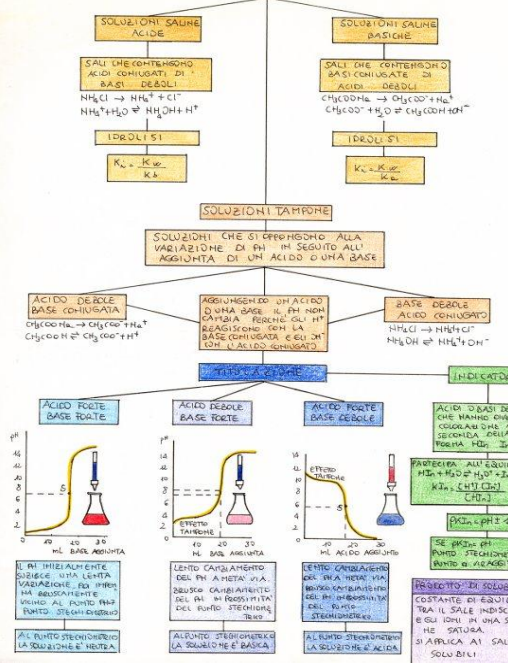 SOLUZIONI SALINE
ACIDE
SALI CHE CONTENGONO
ACIDI CONIUGATI DI
BASI DEBOLI
NH₄Cl → NH₄⁺ + Cl⁻
NH₄⁺ + H₂O ⇌ NH₄OH + H⁺
IDROLISI
Ki = Kw / Kb
SOLUZIONI SALINE
BASICHE
SALI CHE CONTENGONO
BASI CONIUGATE DI
ACIDI DEBOLI
CH₃COONa → CH₃COO⁻ + Na⁺
CH₃COO⁻ + H₂O ⇌ CH₃COOH + OH⁻
IDROLISI
Ki = Kw / Ka
SOLUZIONI TAMPONE
SOLUZIONI CHE SI OPPONGONO ALLA
VARIAZIONE DI PH IN SEGUITO ALL'
AGGIUNTA DI UN ACIDO O UNA BASE
ACIDO DEBOLE
BASE CONIUGATA
CH₃COONa → CH₃COO⁻ + Na⁺
CH₃COOH ⇌ CH₃COO⁻ + H⁺
AGGIUNGENDO UN ACIDO
O UNA BASE IL PH NON
CAMBIA PERCHÉ GLI H⁺
REAGISCONO CON LA
BASE CONIUGATA E GLI OH⁻
CON L'ACIDO CONIUGATO
BASE DEBOLE
ACIDO CONIUGATO
NH₄Cl → NH₄⁺ + Cl⁻
NH₄OH ⇌ NH₄⁺ + OH⁻
TITOLAZIONE
ACIDO FORTE
BASE FORTE
PH
14
12
10
8
6
4
2
S
10 20 30
mL BASE AGGIUNTA
IL PH INIZIALMENTE
SUBISCE UNA LENTA
VARIAZIONE, POI
BRUSCAMENTE
VICINO AL PUNTO PH=7
PUNTO STECHIOMETRICO
AL PUNTO STECHIOMETRICO
LA SOLUZIONE È NEUTRA
ACIDO DEBOLE
BASE FORTE
PH
14
12
10
8
6
4
2
S
EFFETTO
TAMPONE
10 20 30
mL BASE AGGIUNTA
LENTO CAMBIAMENTO
DEL PH A METÀ VIA.
BRUSCO CAMBIAMENTO
DEL PH IN PROSSIMITÀ
DEL PUNTO STECHIOME
TRICO
AL PUNTO STECHIOMETRICO
LA SOLUZIONE È BASICA
ACIDO FORTE
BASE DEBOLE
14
12
10
8
6
4
2
EFFETTO
TAMPONE
S
10 20 30
mL ACIDO AGGIUNTO
LENTO CAMBIAMENTO
DEL PH A METÀ VIA.
BRUSCO CAMBIAMENTO
DEL PH IN PROSSIMITÀ
DEL PUNTO
STECHIOMETRICO
AL PUNTO STECHIOMETRICO
LA SOLUZIONE È ACIDA
INDICATO
ACIDI O BASI DE
CHE HANNO
COLORAZIONE A
SECONDA DELLA
FORMA HIn
PARTECIPA ALL'EQUIL
HIn + H₂O ⇌ H₃O⁺ + In
KIn = [H⁺] [In⁻] / [HIn]
SE PKIn = PH
PUNTO STECHIOME
PUNTO DI VIRAGGI
PRODOTTO DI SOLUB
COSTANTE DI EQUIL
TRA IL SALE INDISC
E GLI IONI IN UNA S
NE SATURA.
SI APPLICA AI SAL
SOLUBILI